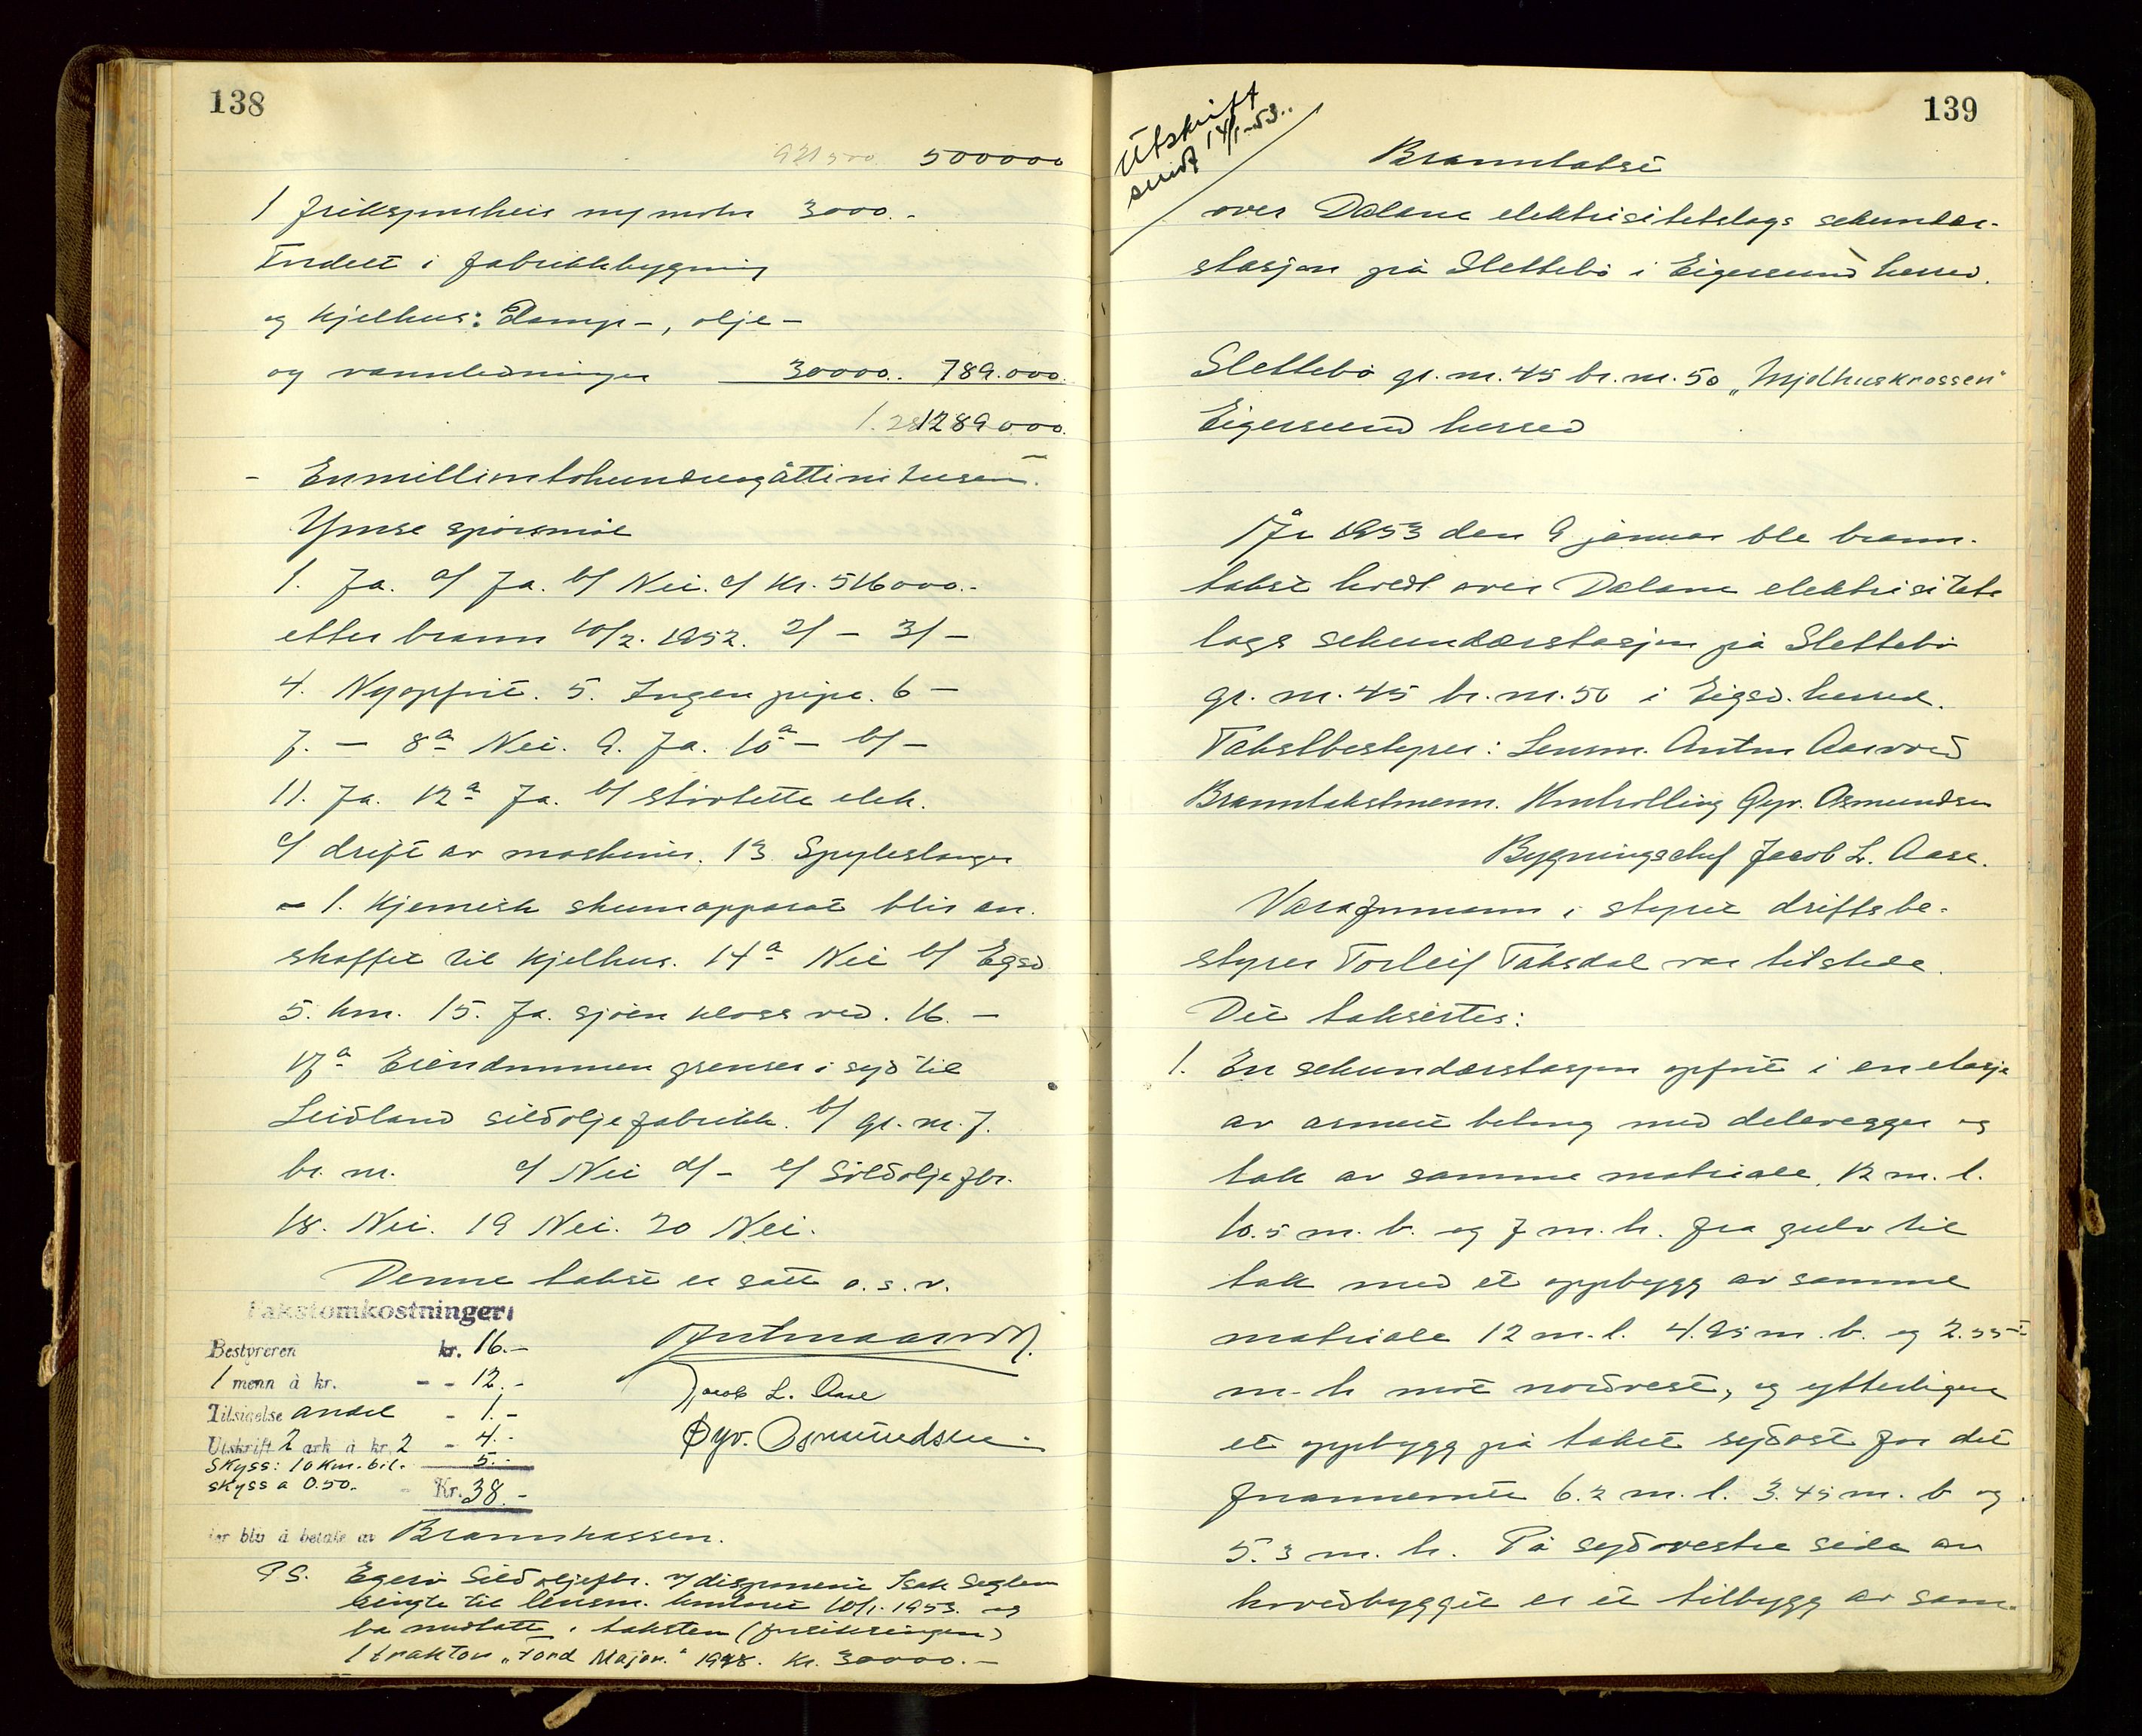 138
921500. 500000
1 friksjonsheis ny motor 3000.-
Endel i fabrikkbygning
og Kjelhus: Damp-, olje-
og vannledninger 30000.. 789.000.
1.28 1289000.
- Enmilliontohundreogåttini tusen. -
Ymse spörsmål
1. Ja. a/ Ja. b/ Nei. c/ Kr. 516000.-
etter brann 10/2. 1952. 2/ - 3/ -
4. Nyoppfört. 5. Ingen pipe. 6 -
7. - 8a Nei. 9. Ja. 10a - b/ -
11. Ja. 12a Ja. b/ Störtette elek.
c/ drift av maskiner. 13 Spyleslanger
- 1. Kjemisk skumapparat blir an-
skaffet til Kjelhus. 14a Nei b/ Egsd
5. km. 15. Ja. sjöen kloss ved. 16. -
17a Eiendommen grenser i syd til
Leidland sildoljefabrikk. b/ gr. nr. 7.
br. nr. c/ Nei d/ - e/ Sildoljefbr.
18. Nei. 19 Nei. 20 Nei.
Denne takst er satt o. s. v.
Takstomkostninger:
Bestyreren kr. 16.-
1 menn à kr. - - 12.-
Tilsigelse andel - 1.-
Utskrift 2 ark à kr. 2 - 4.-
Skyss: 10 km. bil. 5.-
skyss a 0.50. - Kr. 38.-
Jacob L. Aase
Øyv. Osmundsen
som blir å betale av Brannkassen.
P S. Egerö Sildoljefbr. v/ disponent Isak Seglem
ringte til lensm. kontoret 10/1. 1953. og
ba medtatt i taksten (forsikringen)
1 traktor „Ford Major." 1948. Kr. 30000.-
139
Utskrift
sendt 14/1-53..
Branntakst
over Dalane elektrisitetslags sekundær-
stasjon på Slettebö i Eigersund herred.
Slettebö gr. nr. 45 br. nr. 50 „Mjølhuskrossen"
Eigersund herred
År 1953 den 9 januar ble brann-
takst holdt over Dalane elektrisitets
lags sekundærstasjon på Slettebö
gr. nr. 45 br. nr. 50 i Eigsd. herred.
Takstbestyrer: Lensm. Anton Aarrød
Branntakstmenn. Kontrolling Øyv. Osmundsen
Bygningschef Jacob L. Aase.
Varaformann i styret driftsbe-
styrer Torleif Taksdal var tilstede.
Det takseres:
1. En sekundærstasjon oppfört i en etasje
av armert betong med delevegger og
tak av samme materiale, 12 m. l.
10.5 m. b. og 7 m. h. fra gulv til
tak med et oppbygg av samme
materiale 12 m. l. 4.95 m. b. og 2.55
m. h mot nordvest, og ytterligere
et oppbygg på taket sydöst for det
förnevnte 6.2 m. l. 3.45 m. b og
5.3 m. h. På sydvestre side av
hovedbygget er et tilbygg av sam-